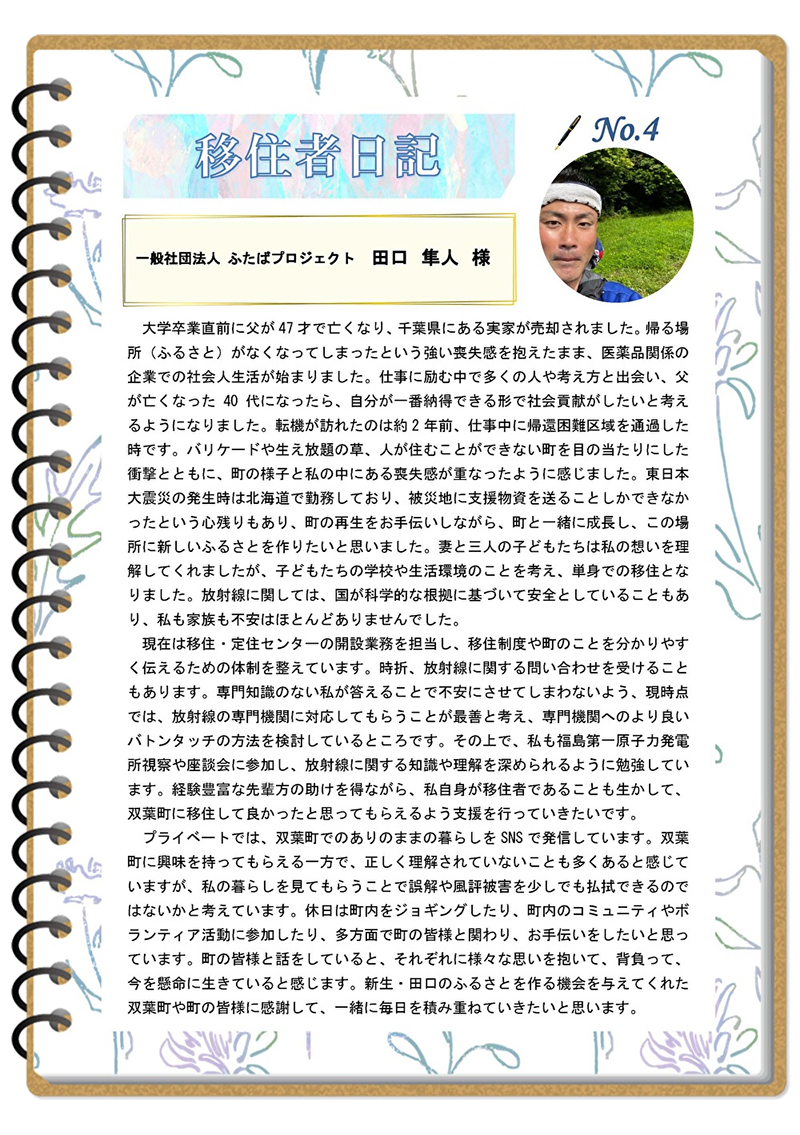 移住者日記
No.4
一般社団法人 ふたばプロジェクト　田口　隼人　様
　大学卒業直前に父が 47 才で亡くなり、千葉県にある実家が売却されました。帰る場
所（ふるさと）がなくなってしまったという強い喪失感を抱えたまま、医薬品関係の
企業での社会人生活が始まりました。仕事に励む中で多くの人や考え方と出会い、父
が亡くなった 40 代になったら、自分が一番納得できる形で社会貢献がしたいと考え
るようになりました。転機が訪れたのは約 2 年前、仕事中に帰還困難区域を通過した
時です。バリケードや生え放題の草、人が住むことができない町を目の当たりにした
衝撃とともに、町の様子と私の中にある喪失感が重なったように感じました。東日本
大震災の発生時は北海道で勤務しており、被災地に支援物資を送ることしかできなか
ったという心残りもあり、町の再生をお手伝いしながら、町と一緒に成長し、この場
所に新しいふるさとを作りたいと思いました。妻と三人の子どもたちは私の想いを理
解してくれましたが、子どもたちの学校や生活環境のことを考え、単身での移住とな
りました。放射線に関しては、国が科学的な根拠に基づいて安全としていることもあ
り、私も家族も不安はほとんどありませんでした。
　現在は移住・定住センターの開設業務を担当し、移住制度や町のことを分かりやす
く伝えるための体制を整えています。時折、放射線に関する問い合わせを受けること
もあります。専門知識のない私が答えることで不安にさせてしまわないよう、現時点
では、放射線の専門機関に対応してもらうことが最善と考え、専門機関へのより良い
バトンタッチの方法を検討しているところです。その上で、私も福島第一原子力発電
所視察や座談会に参加し、放射線に関する知識や理解を深められるように勉強してい
ます。経験豊富な先輩方の助けを得ながら、私自身が移住者であることも生かして、
双葉町に移住して良かったと思ってもらえるよう支援を行っていきたいです。
　プライベートでは、双葉町でのありのままの暮らしを SNS で発信しています。双葉
町に興味を持ってもらえる一方で、正しく理解されていないことも多くあると感じて
いますが、私の暮らしを見てもらうことで誤解や風評被害を少しでも払拭できるので
はないかと考えています。休日は町内をジョギングしたり、町内のコミュニティやボ
ランティア活動に参加したり、多方面で町の皆様と関わり、お手伝いをしたいと思っ
ています。町の皆様と話をしていると、それぞれに様々な思いを抱いて、背負って、
今を懸命に生きていると感じます。新生・田口のふるさとを作る機会を与えてくれた
双葉町や町の皆様に感謝して、一緒に毎日を積み重ねていきたいと思います。